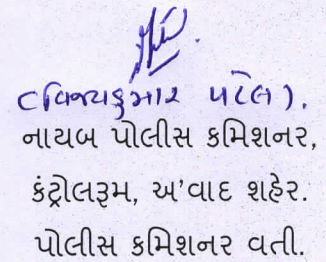 (વિજયકુમાર પટેલ).
નાયબ પોલીસ કમિશનર,
કંટ્રોલરૂમ, અ'વાદ શહેર.
પોલીસ કમિશનર વતી.